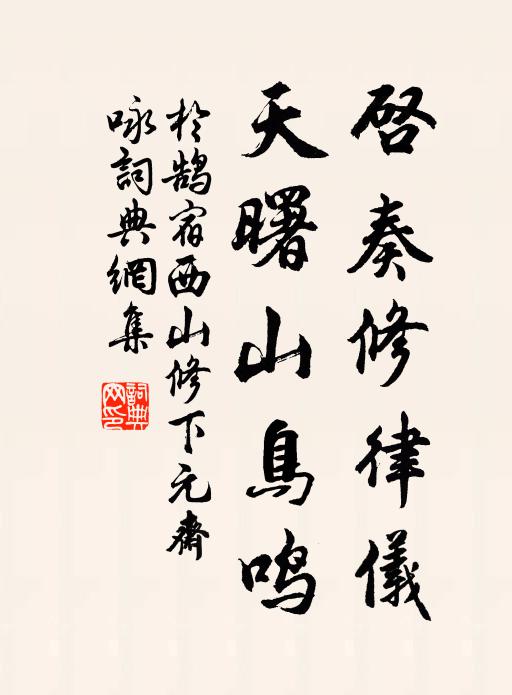 啓奏修律儀
天曙山鳥鸣
於鵠宿西山修下元齋
詠詞典網集
詞典网印